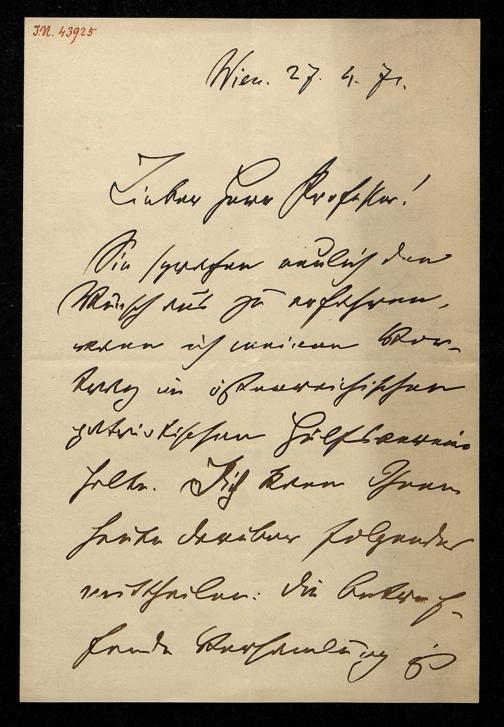 I.N. 43925
Wien. 27. 4. 71.
Lieber Herr Professor!
Sie sprachen neulich den
Wunsch aus zu erfahren,
wann ich meinen Vor-
trag im österreichischen
patriotischen Hülfsverein
halte. Ich kann Ihnen
heute darüber folgendes
mittheilen: die betref-
fende Versamlung ist